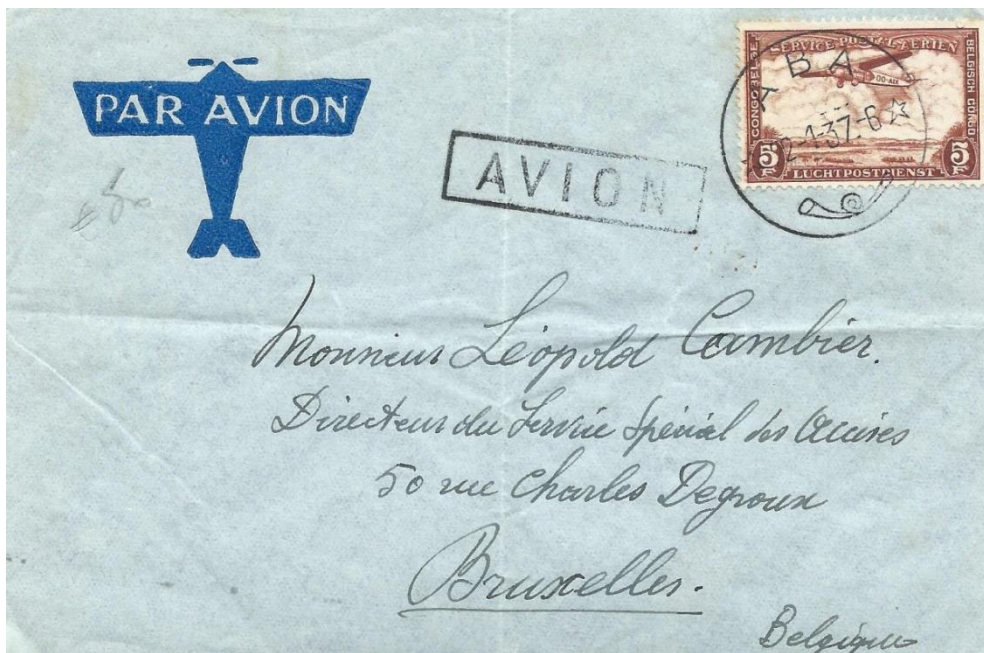 PAR AVION
AVION
SERVICE POSTAL AÉRIEN
CONGO BELGE
BELGISCH CONGO
OO-AIR
5 F
5 F
LUCHTPOSTDIENST
ABA
2-1-37.-6
Monsieur Léopold Cambier.
Directeur du Service Spécial des Accises
50 rue Charles Degroux
Bruxelles.
Belgique